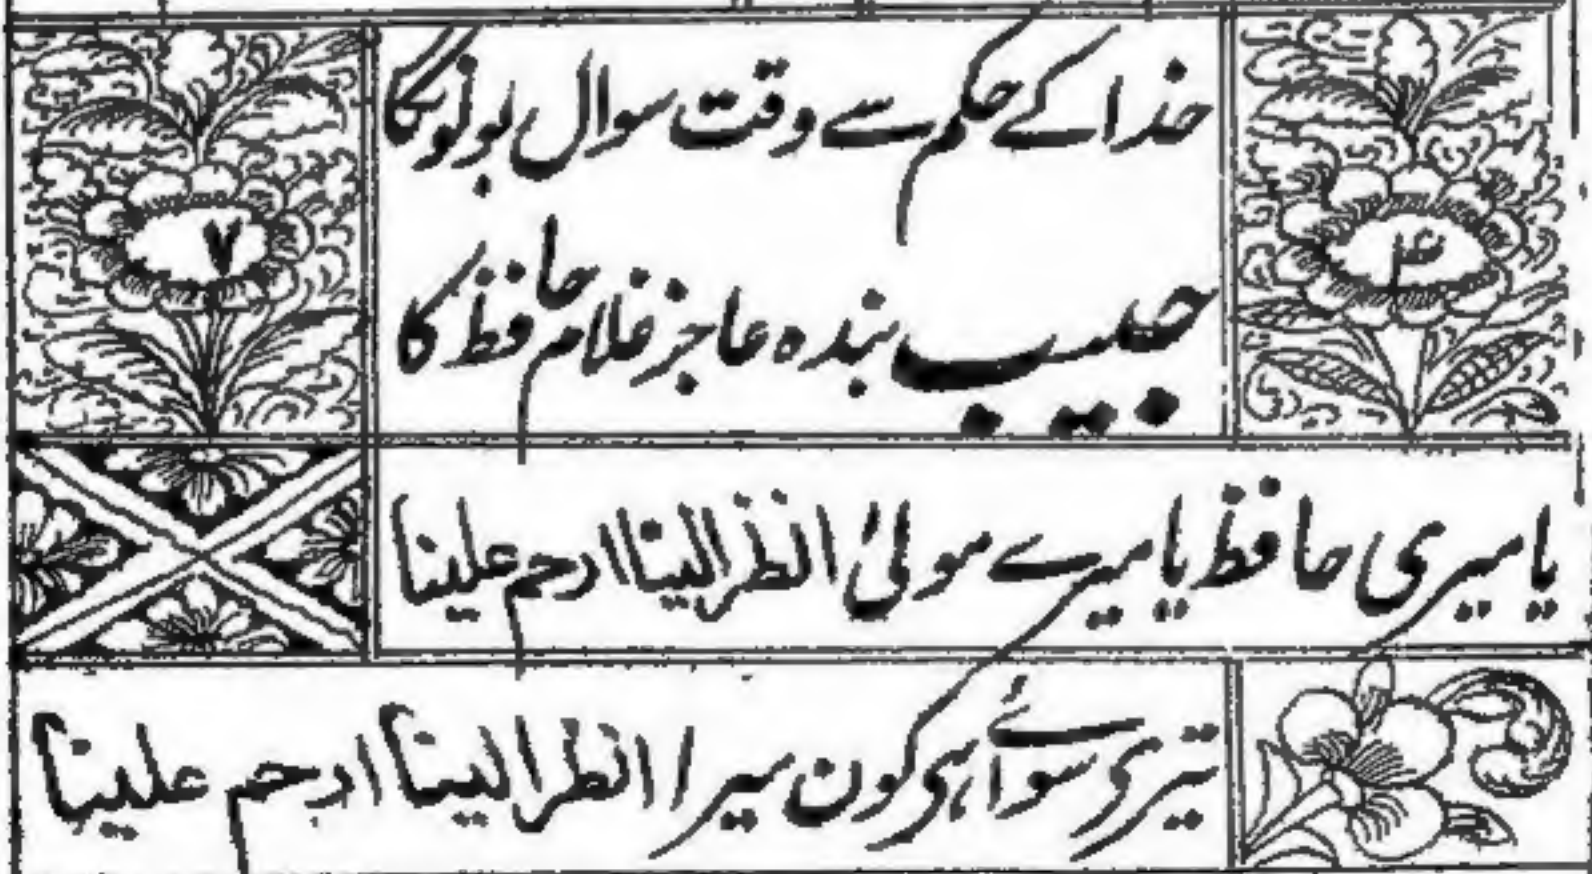 خدا کے حکم سے وقت سوال بولونگا
۴
۷
حبیب بندہ عاجز غلام حافظ کا
یا میری حافظ یا میرے مولیٰ انظر الینا ارحم علینا
تیری سوائے ہی کون میرا انظر الینا ارحم علینا